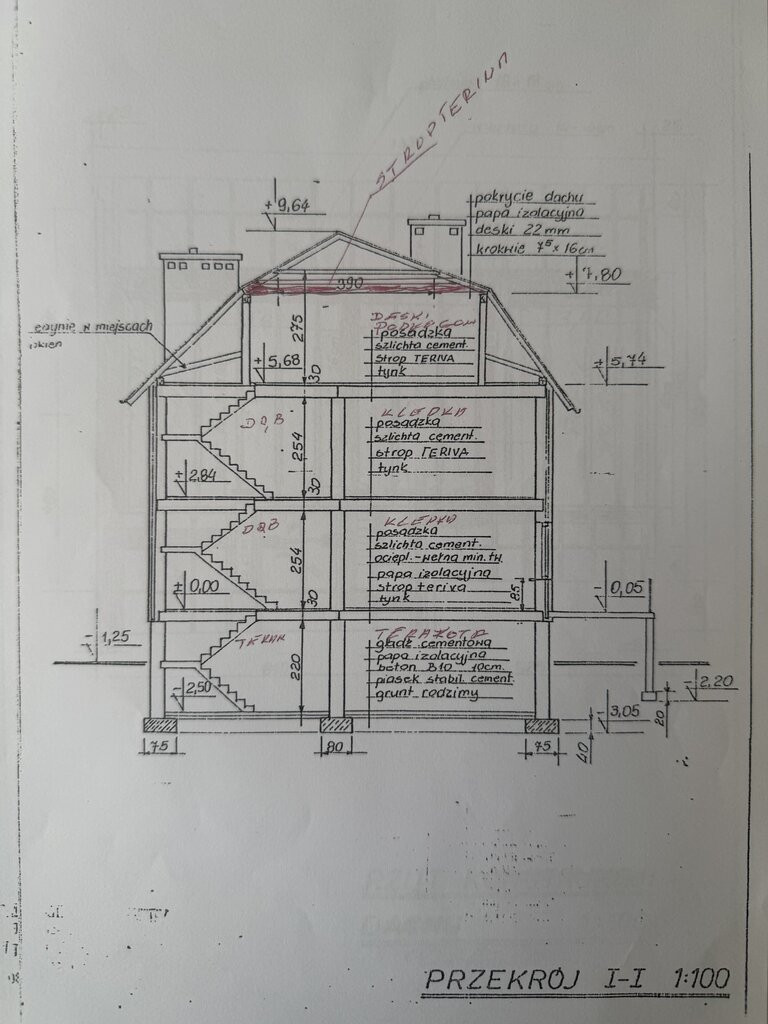 STROP TERIWA
+ 9,64
pokrycie dachu
papa izolacyjna
deski 22 mm
krokwie 7⁵ x 16 cm
+ 7,80
390
jedynie w miejscach
okien
275
DESKI
PODŁOGOW
posadzka
szlichta cement.
strop TERIVA
tynk
+ 5,68
30
+ 5,74
DĄB
254
KLEPKA
posadzka
szlichta cement.
strop TERIVA
tynk
+ 2,84
30
DĄB
254
KLEPKA
posadzka
szlichta cement.
ociepl.-wełna min. tw.
papa izolacyjna
strop teriva
tynk
85
± 0,00
30
- 0,05
- 1,25
220
TERAKOTA
gładź cementowa
papa izolacyjna
beton B10 10cm.
piasek stabil. cement.
grunt rodzimy
- 2,50
- 2,20
20
- 3,05
40
75
80
75
PRZEKRÓJ I-I 1:100